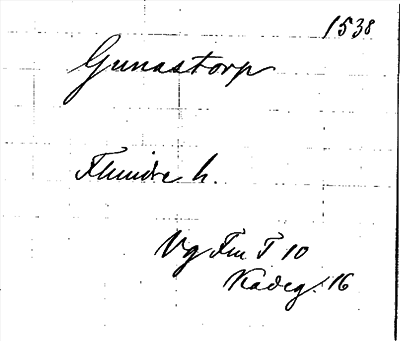 1538
Gunastorp
Flundre h.
Vg Fm T 10
Kadeg. 16